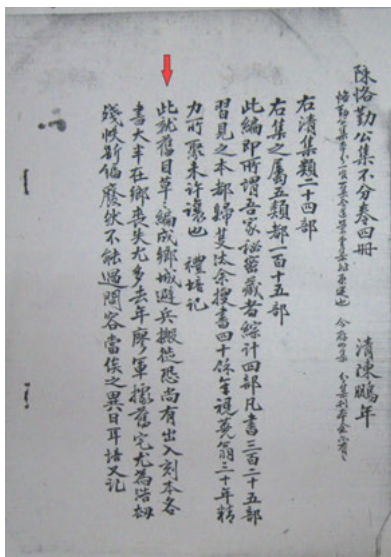 陳恪勤公集不分卷四冊 清陳鵬年
右清集類二十四部
右集之屬五類都一百十五部
此編即所謂吾家祕密藏者綜計四部凡書三百二十五部
習見之本都歸芟汰余搜書四十餘年視蕘翁三十年精
力所聚未許讓也 禮培記
此就舊目草〻編成鄉城避兵搬徙恐尚有出入刻本各
書大半在鄉喪失尤多去年廖軍據舊宅尤為浩劫
殘帙斷編廢然不能過問容當俟之異日耳培又記